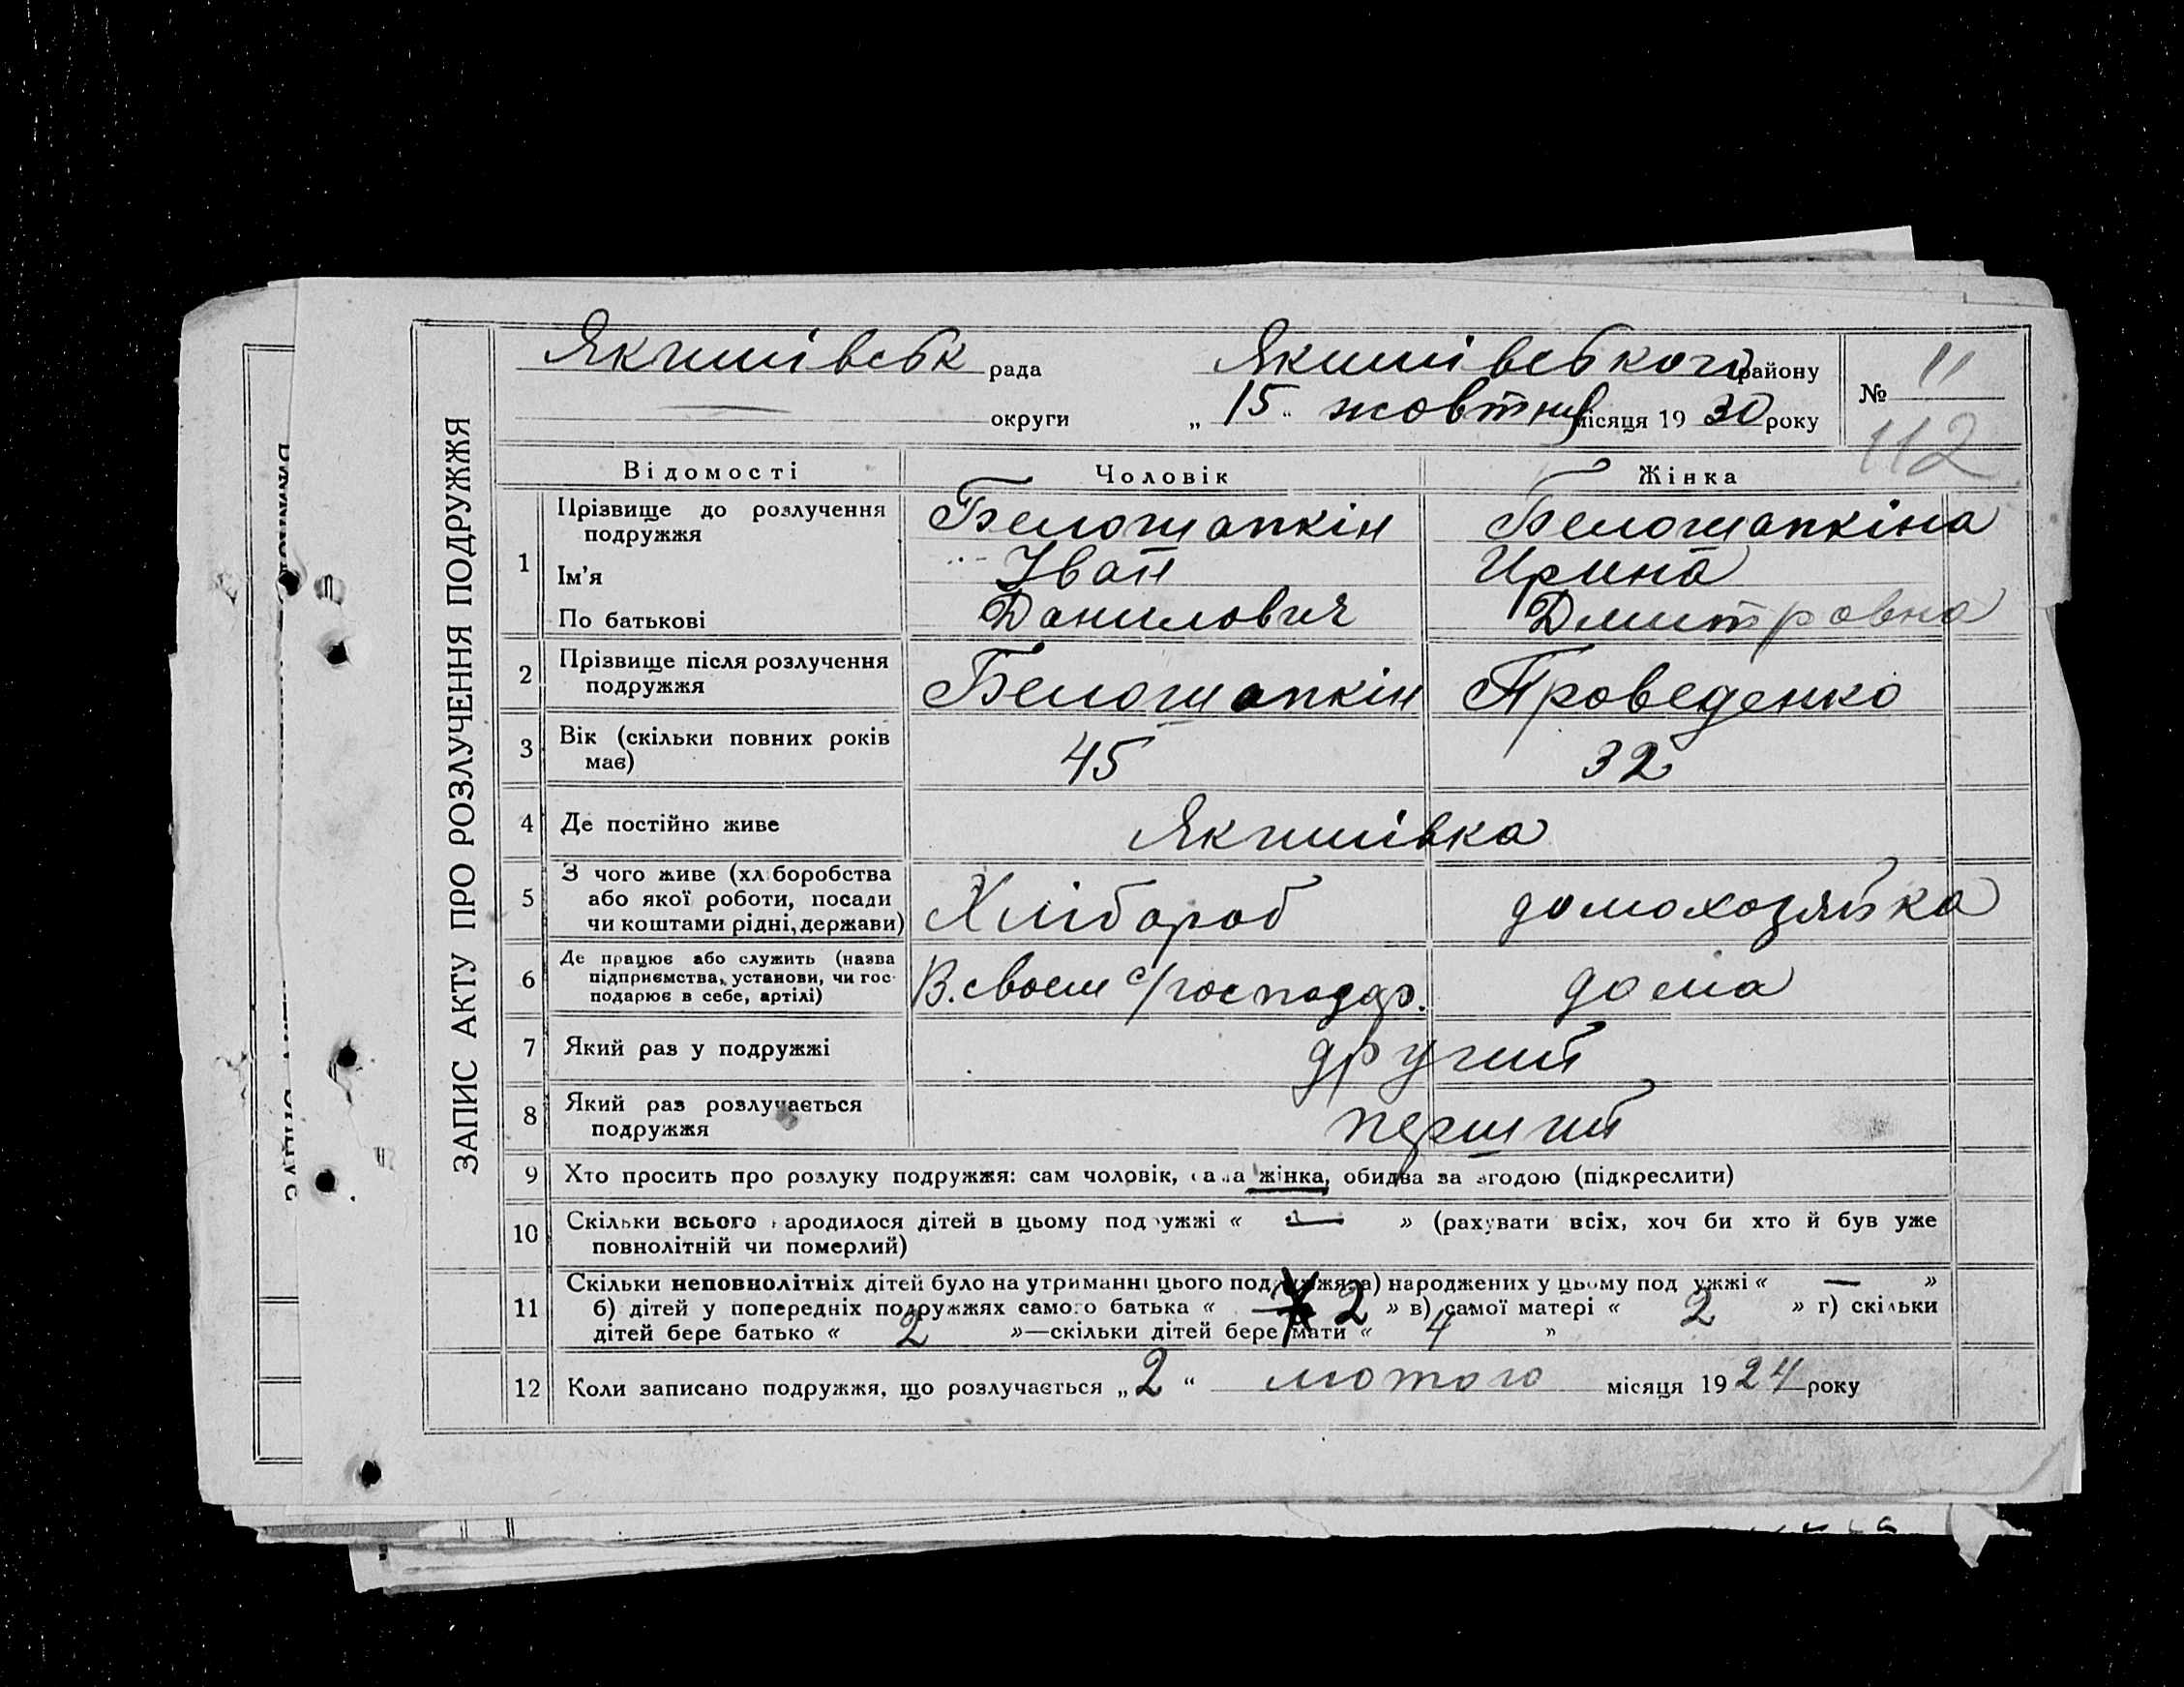 Якимівськ рада Якимівського району № 11
округи „ 15 „ жовтня місяця 19 30 року
112
ЗАПИС АКТУ ПРО РОЗЛУЧЕННЯ ПОДРУЖЖЯ
Відомості Чоловік Жінка
1 Прізвище до розлучення Белошапкін Белошапкіна
подружжя
Ім'я Іван Ирина
По батькові Данилович Дмитровна
2 Прізвище після розлучення Белошапкін Проведенко
подружжя
3 Вік (скільки повних років 45 32
має)
4 Де постійно живе Якимівка
5 З чого живе (хліборобства
або якої роботи, посади Хлібороб домохозяйка
чи коштами рідні, держави)
6 Де працює або служить (назва
підприємства, установи, чи гос- В. своем с/господар. дома
подарює в себе, артілі)
7 Який раз у подружжі другий
8 Який раз розлучається перший
подружжя
9 Хто просить про розлуку подружжя: сам чоловік, сама жінка, обидва за згодою (підкреслити)
10 Скільки всього народилося дітей в цьому подружжі « — » (рахувати всіх, хоч би хто й був уже
повнолітній чи померлий)
11 Скільки неповнолітніх дітей було на утриманні цього подружжя: а) народжених у цьому подружжі « — »
б) дітей у попередніх подружжях самого батька « 2 » в) самої матері « 2 » г) скільки
дітей бере батько « 2 »—скільки дітей бере мати « 4 »
12 Коли записано подружжя, що розлучається „ 2 “ лютого місяця 19 24 року